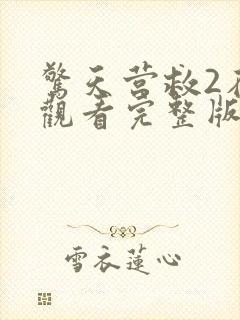 驚天营救2
觀看完整版
雪衣蓮心